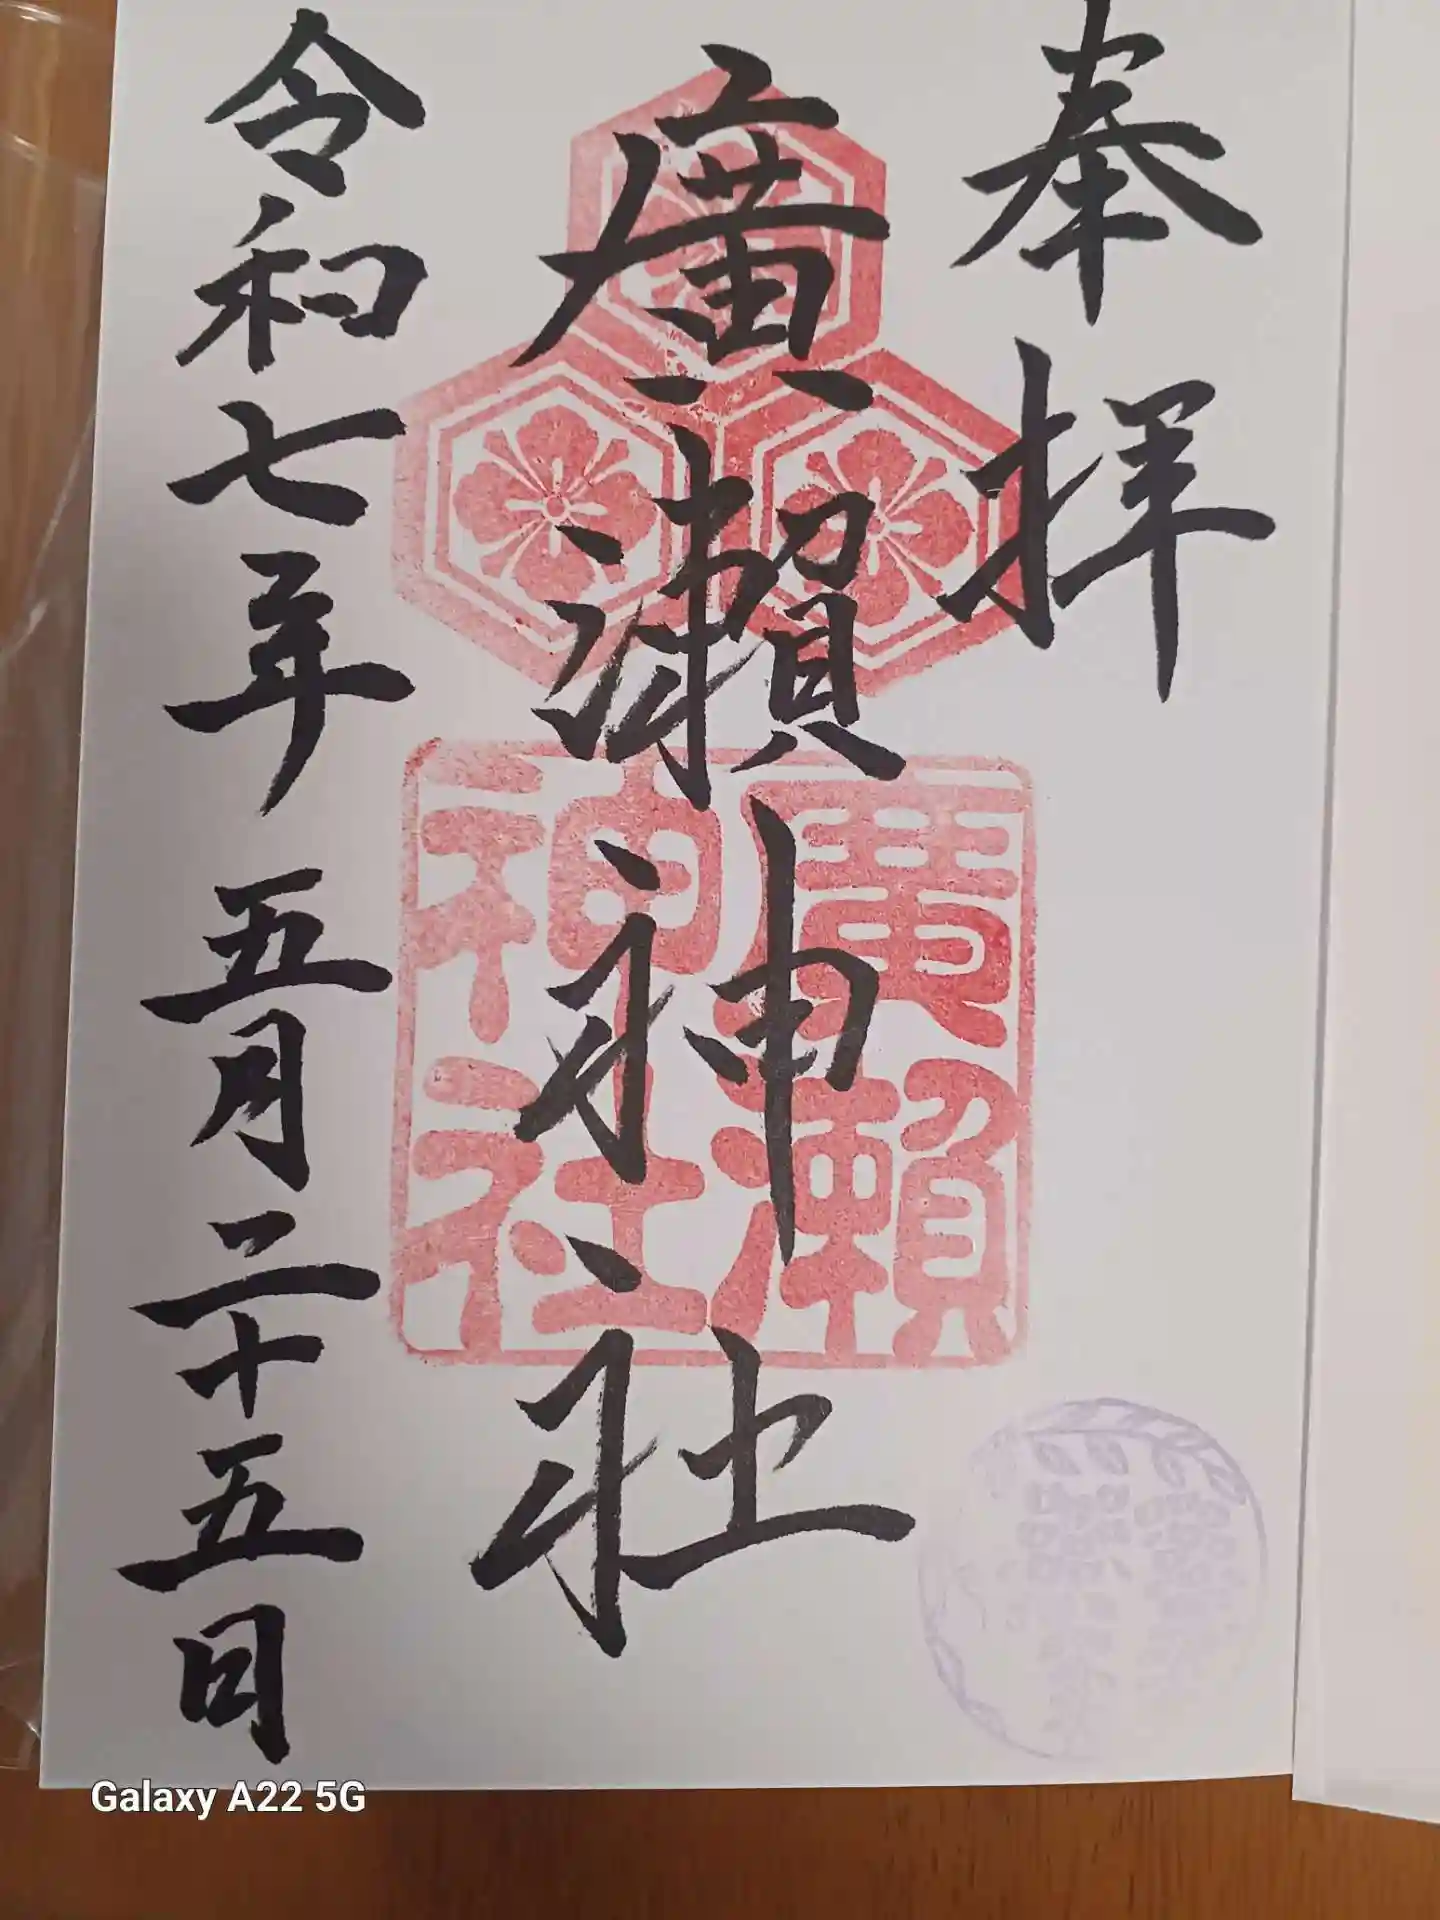 奉拝
廣瀬神社
令和七年五月二十五日
廣瀬
神社
Galaxy A22 5G